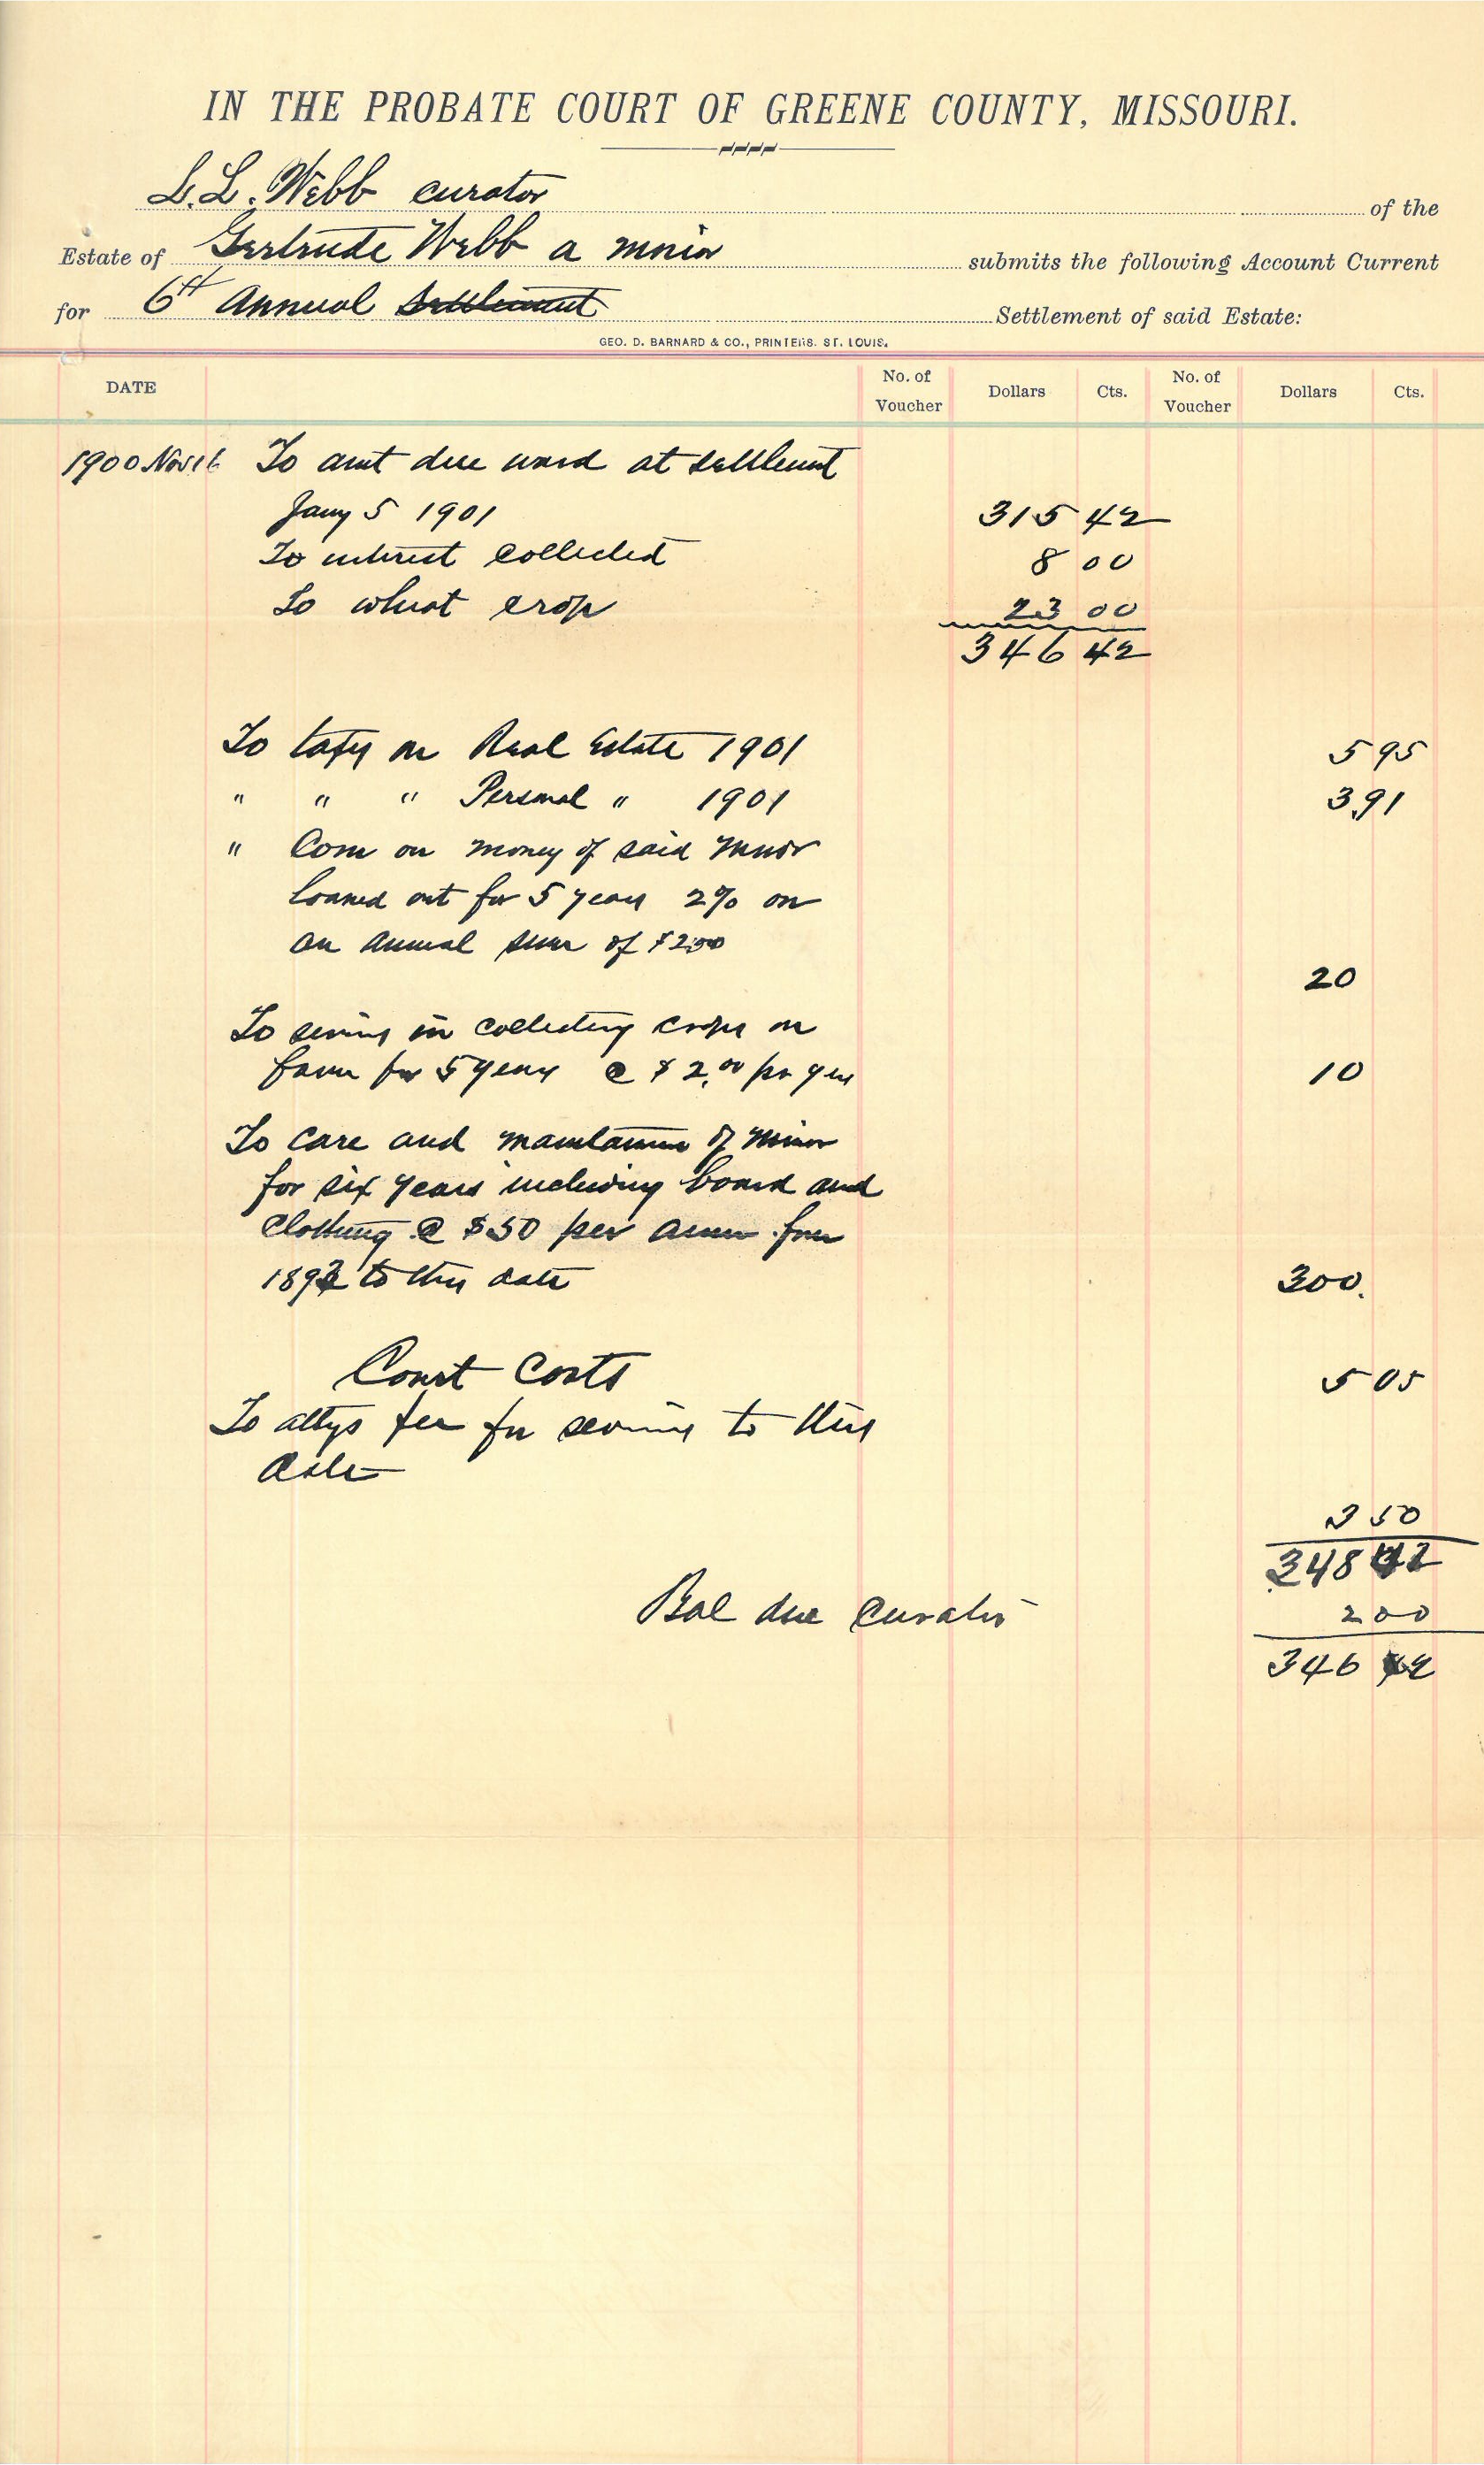 IN THE PROBATE COURT OF GREENE COUNTY, MISSOURI.
L. L. Webb curator of the
Estate of Gertrude Webb a minor submits the following Account Current
for 6th Annual Settlement Settlement of said Estate:
GEO. D. BARNARD & CO., PRINTERS. ST. LOUIS.
DATE No. of Voucher Dollars Cts. No. of Voucher Dollars Cts.
1900 Nov 16 To amt due ward at settlemt
Jany 5 1901 315 42
To interest collected 8 00
To wheat crop 23 00
346 42
To taxes on Real Estate 1901 5 95
" " " Personal " 1901 3 91
" Com on money of said minor
loaned out for 5 years 2% on
an annual sum of $200
20
To servics in collecting crops on
farm for 5 years @ $2.00 per year 10
To care and maintainence of minor
for six years including board and
clothing @ $50 per annum from
189 to this date 300.
Court Costs 5 05
To attys fee for services to this
date
3 50
348 42
Bal due curator 2 00
346 42